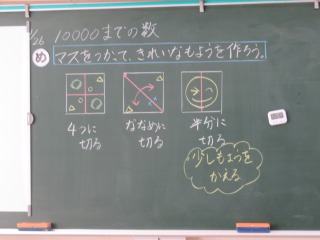 1/26 10000までの数
め マスをつかって、きれいなもようを作ろう。
4つに
切る
ななめに
切る
半分に
切る
少しもようを
かえる